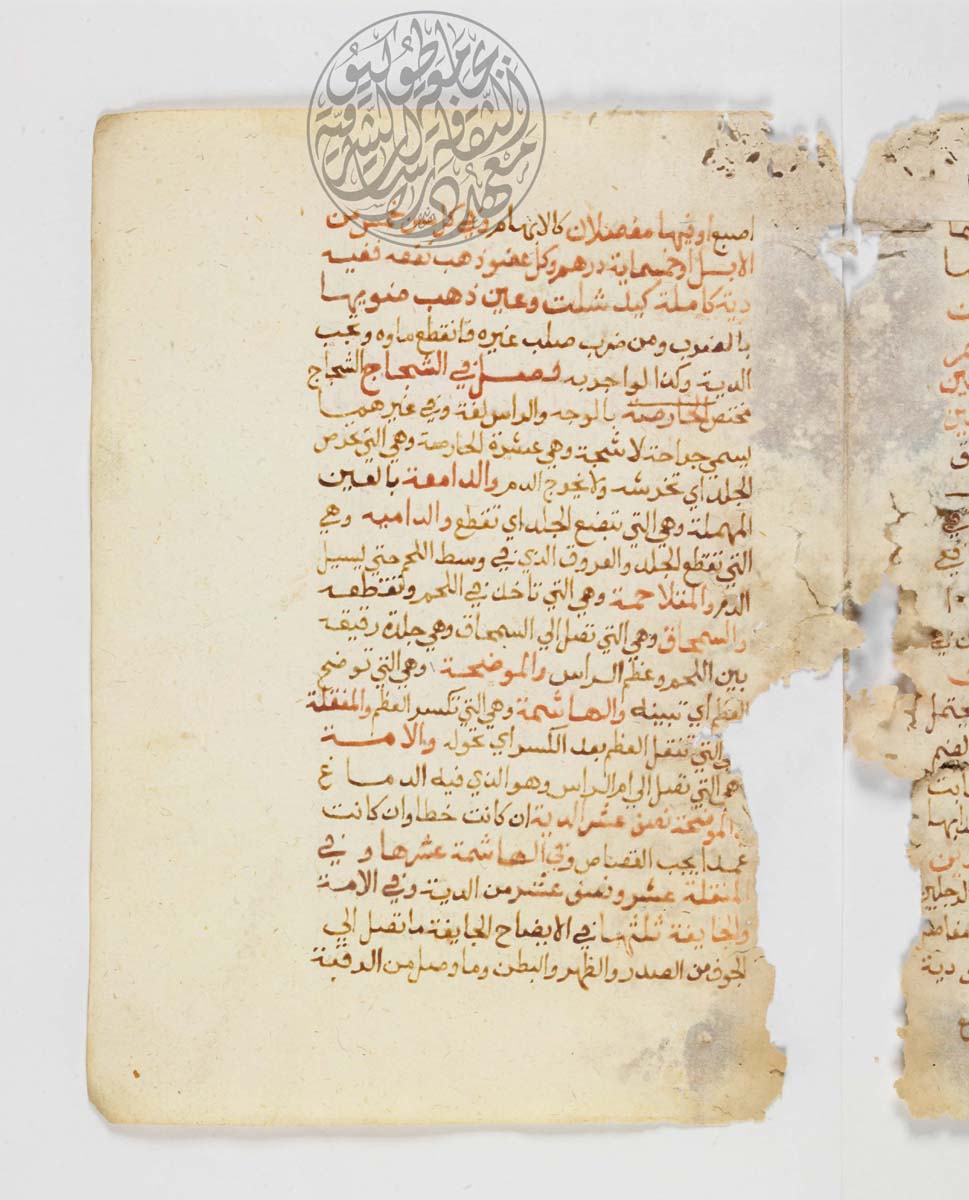 معهد دراسات الثقافة الشرقية
جامعة طوكيو
اصبع اوفيها مفصلان كالابهام وفي كل سن خمس من
الابل اوخمسماية درهم وكل عضو ذهب نفعه ففيه
دية كاملة كيد شلت وعين ذهب ضويها
بالضرب ومن ضرب صلب غيره فانقطع ماوه وتجب
الدية وكذا لواحدبه فصل في الشجاج الشجاج
تختص بالوجه والراس لغة وفي غيرهما
يسمي جراحة لا شجة وهي عشرة الحارصة وهي التي تحرص
الجلد اي تخرشه ولا تخرج الدم والدامعة بالعين
المهملة وهي التي تبضع الجلد اي تقطع والداميه وهي
التي تقطع الجلد والعروق الذي في وسط اللحم حتي يسيل
الدم والمتلاحمة وهي التي تاخذ في اللحم وتقطعه
والسمحاق وهي التي تصل الي السمحاق وهي جلدة رقيقه
بين اللحم وعظم الراس والموضحة وهي التي توضح
العظم اي تبينه والهاشمة وهي التي تكسر العظم والمنقلة
وهي التي تنقل العظم بعد الكسر اي تحوله والامة
هي التي تصل الي ام الراس وهو الذي فيه الدماغ
الموضحة نصف عشر الدية ان كانت خطا وان كانت
عمدا يجب القصاص وفي الهاشمة عشرها وفي
المنقلة عشر ونصف عشر من الدية وفي الامة
والجايفة ثلثها في الايضاح الجايفة ما تصل الي
الجوف من الصدر والظهر والبطن وما وصل من الرقبة